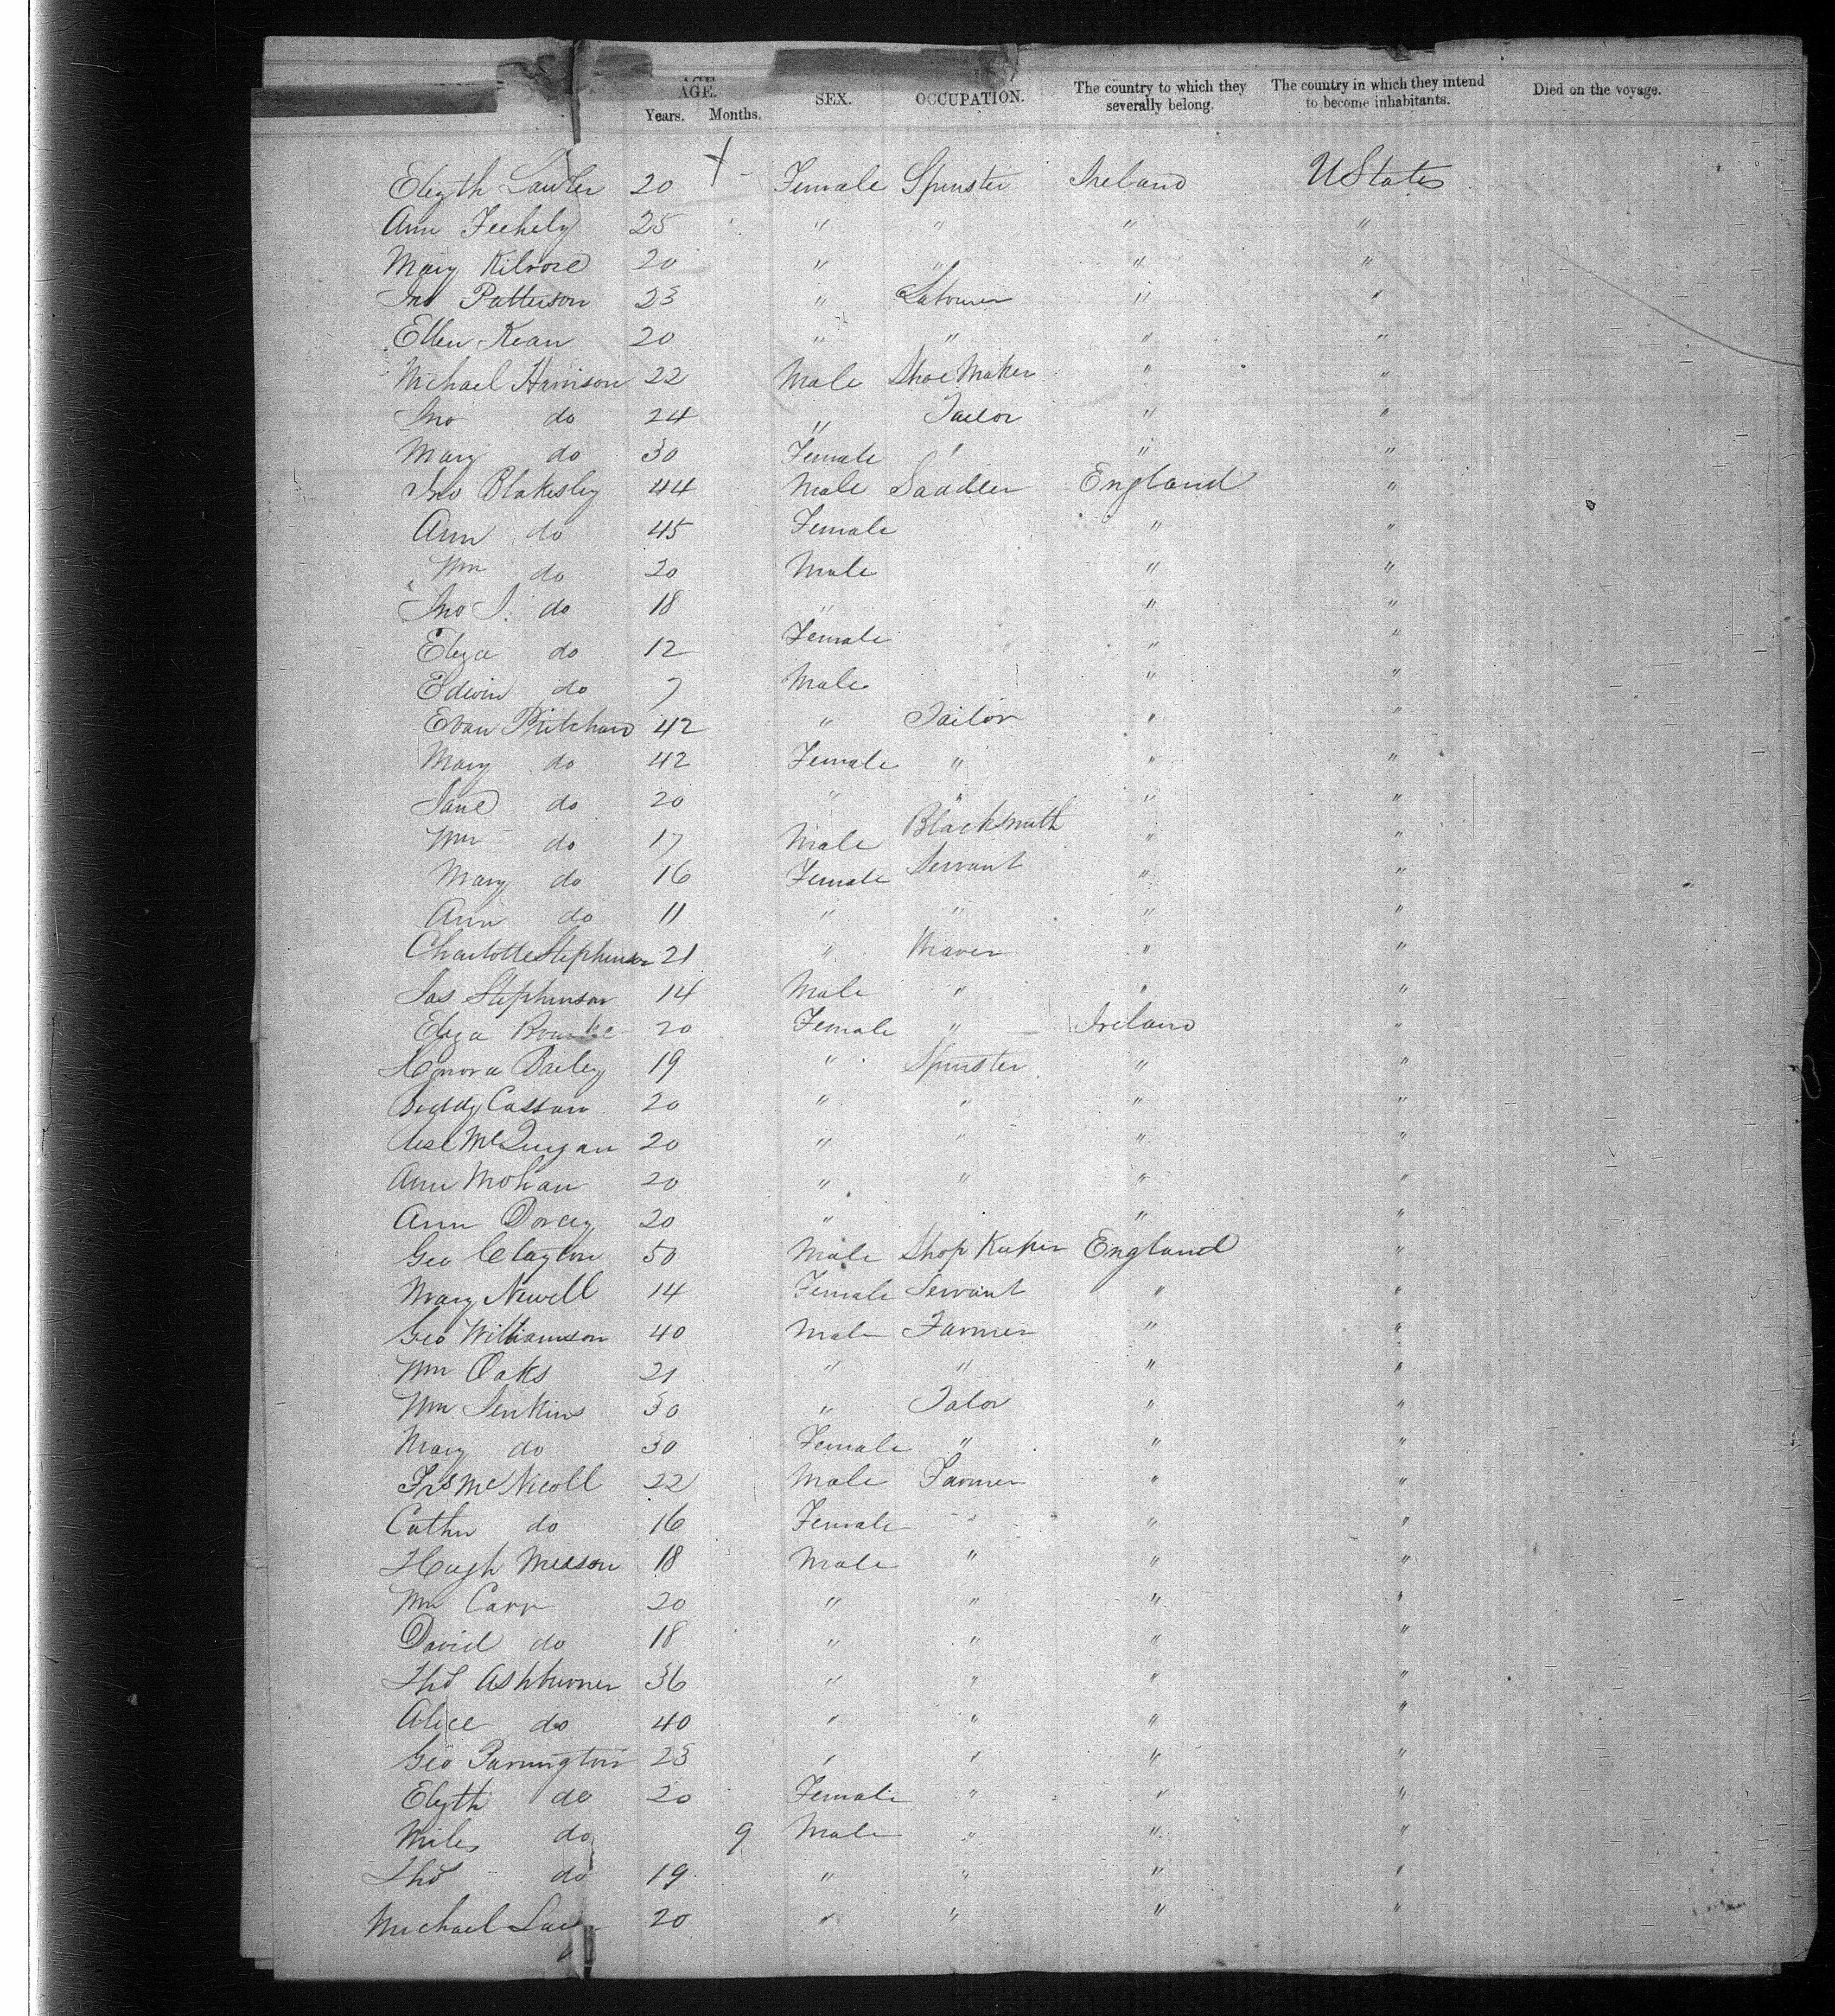 AGE.
Years. Months. SEX. OCCUPATION. The country to which they severally belong. The country in which they intend to become inhabitants. Died on the voyage.
Elizth Lawler 20 Female Spinster Ireland U States
Ann Feehely 25 " " " "
Mary Kilrose 20 " " " "
Jno Patterson 23 " Labourer " "
Ellen Kean 20 " " " "
Michael Harrison 22 Male Shoe Maker " "
Jno do 24 " Tailor " "
Mary do 30 Female " " "
Jno Blakesley 44 Male Saddler England "
Ann do 45 Female " "
Wm do 20 Male " "
Jno J. do 18 " " "
Eliza do 12 Female " "
Edwin do 7 Male " "
Evan Pritchard 42 " Tailor " "
Mary do 42 Female " " "
Jane do 20 " " " "
Wm do 17 Male Blacksmith " "
Mary do 16 Female Servant " "
Ann do 11 " " " "
Charlotte Stephenson 21 " Weaver " "
Jas Stephenson 14 Male " " "
Eliza Bourke 20 Female " Ireland "
Honora Bailey 19 " Spinster " "
Biddy Cassan 20 " " " "
McGuigan 20 " " " "
Ann Mohan 20 " " " "
Ann Dorcey 20 " " "
Geo Clayton 50 Male Shop Keeper England "
Mary Newell 14 Female Servant " "
Geo Williamson 40 Male Farmer " "
Wm Oaks 21 " " " "
Wm Jenkins 30 " Talor " "
Mary do 30 Female " " "
Frs McNicoll 22 Male Farmer " "
Cathn do 16 Female " " "
Hugh Messon 18 Male " " "
Wm Carr 20 " " " "
David do 18 " " " "
Thos Ashburner 36 " " " "
Alice do 40 " " " "
Geo Parrington 23 " " " "
Elizth do 20 Female " " "
Miles do 9 Male " " "
Thos do 19 " " " "
Michael 20 " " " "